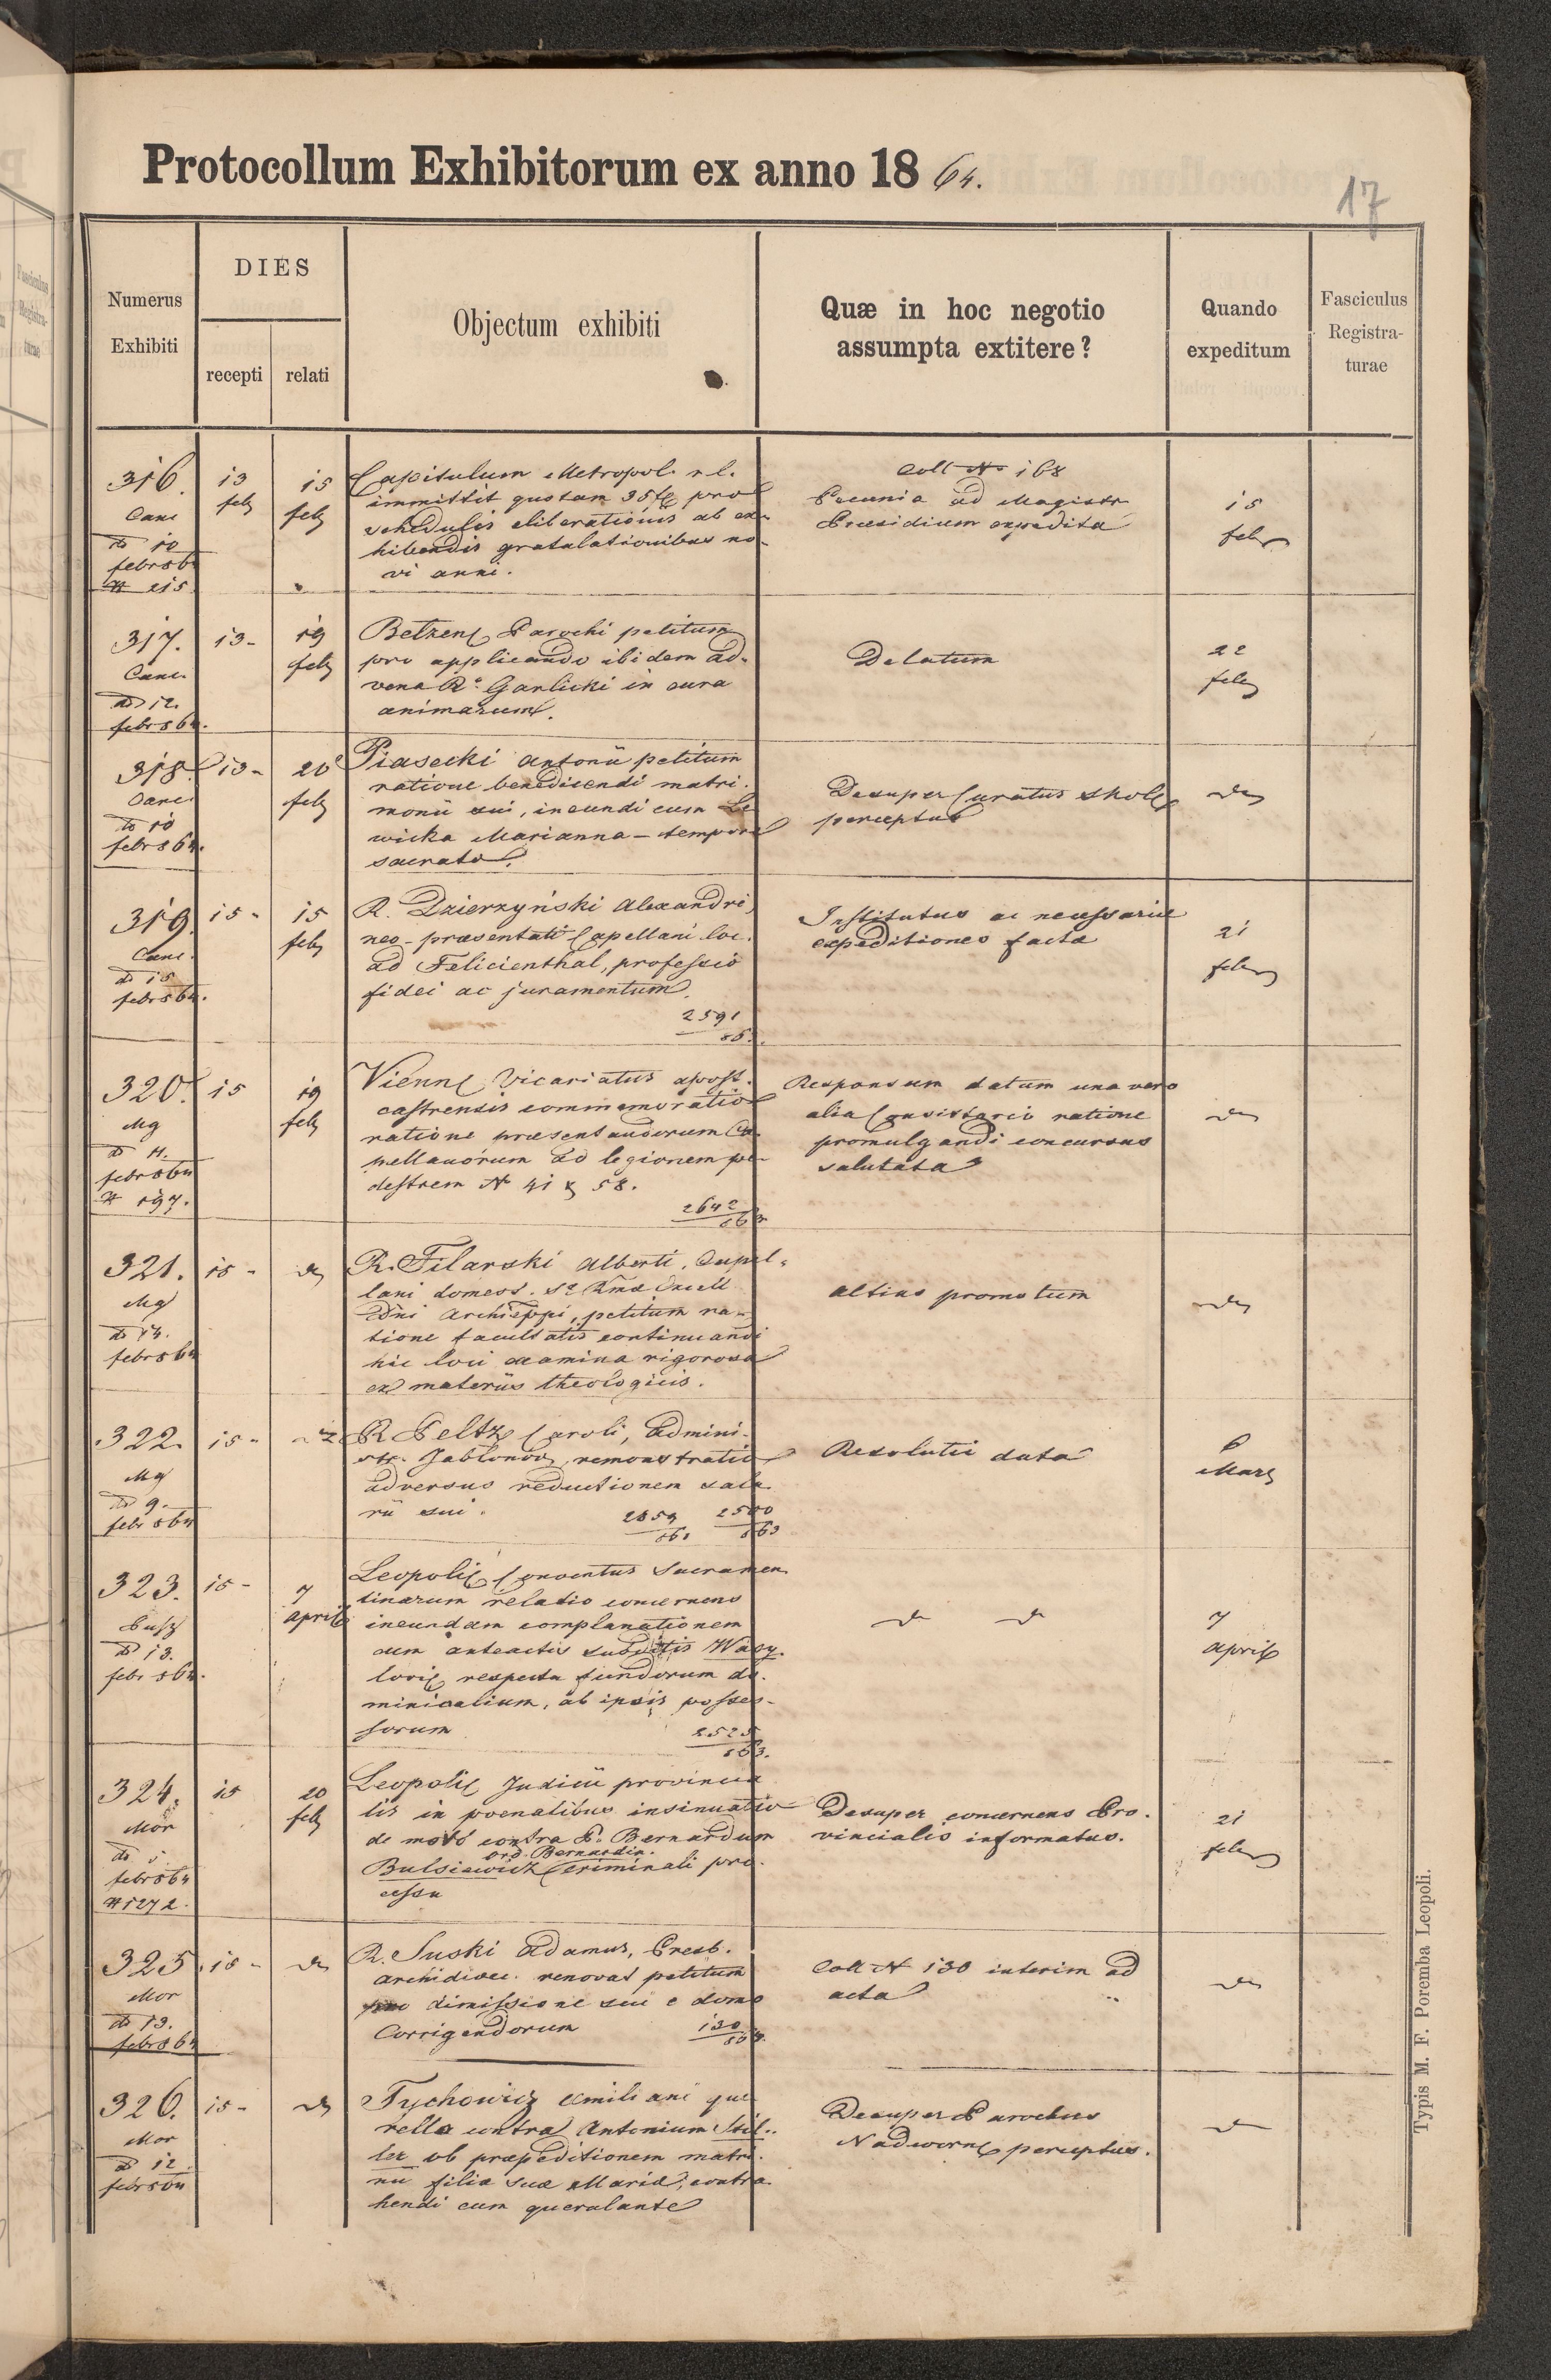 Protocollum Exhibitorum ex anno 18 64.
17
Numerus Exhibiti
DIES
recepti
relati
Objectum exhibiti
Quæ in hoc negotio
assumpta extitere?
Quando
expeditum
Fasciculus
Registra-
turae
316.
Canc
do 10
febr 864
N 215
13
feb
15
feb
Capitulum Metropol. r. l.
immittit quotam 35 pro
schedulis eliberationis ab ex-
hibendis gratulationibus no-
vi anni.
Coll No 168
Pecunia ad Magistr
Præsidium expedita
15
febr
317.
Canc
do 12.
febr 864.
13-
19
feb
Betzens Parochi petitum
pro applicando ibidem ad-
vena Ro Garlicki in cura
animarum.
Delatum
22
feb
318.
Canc
do 10
febr 864.
13-
20
feb
Piasecki Antonii petitum
ratione benedicendi matri-
monii sui, ineundi cum Le
wicka Marianna - tempore
sacrato.
Desuper Curatus
perceptus
do
319.
Canc.
do 15
febr 864.
15-
15
feb
R. Dzierzyński Alexandri,
neo-præsentati Capellani loc.
ad Felicienthal, professio
fidei ac juramentum.
2591
863.
Institutus ac necessariæ
expeditiones factæ
21
feb
320.
Mg
do 11.
febr 864
N 197.
15
19
feb
Vienn Vicariatus apost.
castrensis commemoratio
ratione præsentandorum Ca-
pellanorum ad legionem pe-
destrem N 41 & 58.
2642
863
Responsum datum una vero
alia Consistorio ratione
promulgandi concursus
salutata
do
321.
Mg
do 14.
febr 864
15-
do
R. Filarski Alberti, Capel-
lani domest. Sæ Rmæ Excell
Dni Archieppi, petitum ra-
tione facultatis continuandi
hic loci examina rigorosa
ex materiis theologicis.
altius promotum
do
322.
Mg
do 9.
febr 864
15-
R Peltz Caroli, Admini-
str. Jablonov, remonstratio
adversus reductionem sala-
rii sui.
2859
861
2500
863
Resolutio data
Mart
323.
Busz
do 13.
febr 864.
15-
7
April
Leopoli Conventus Sacramen
tinarum relatio concernens
ineundam complanationem
cum anteactis subditis Wasy-
lovi respectu fundorum do-
minicalium, ab ipsis posses-
sorum
2525
863.
do do
7
April
324.
Mor
do 5
febr 864
N 1272.
15
20
feb
Leopoli Judicii provincia
lis in poenalibus insinuatio
de moto contra P. Bernardum
ord. Bernardin.
Bulsiewicz criminali pro-
cessu
Desuper concernens Pro-
vincialis informatus.
21
feb
325.
Mor
do 13.
febr 864
15-
do
R. Suski Adamus, Presb.
Archidioec. renovat petitum
pro dimissione sui e domo
Corrigendorum
130
864.
Coll N 130 interim ad
acta
do
326.
Mor
do 12.
febr 864
15-
do
Tychowicz Emiliani que
rella contra Antonium Stil-
ler ob præpeditionem matri-
nii filiæ suæ Mariæ, contra-
hendi cum querulante
Desuper Parochus
Nadworn perceptus.
do
Typis M. F. Poremba Leopoli.